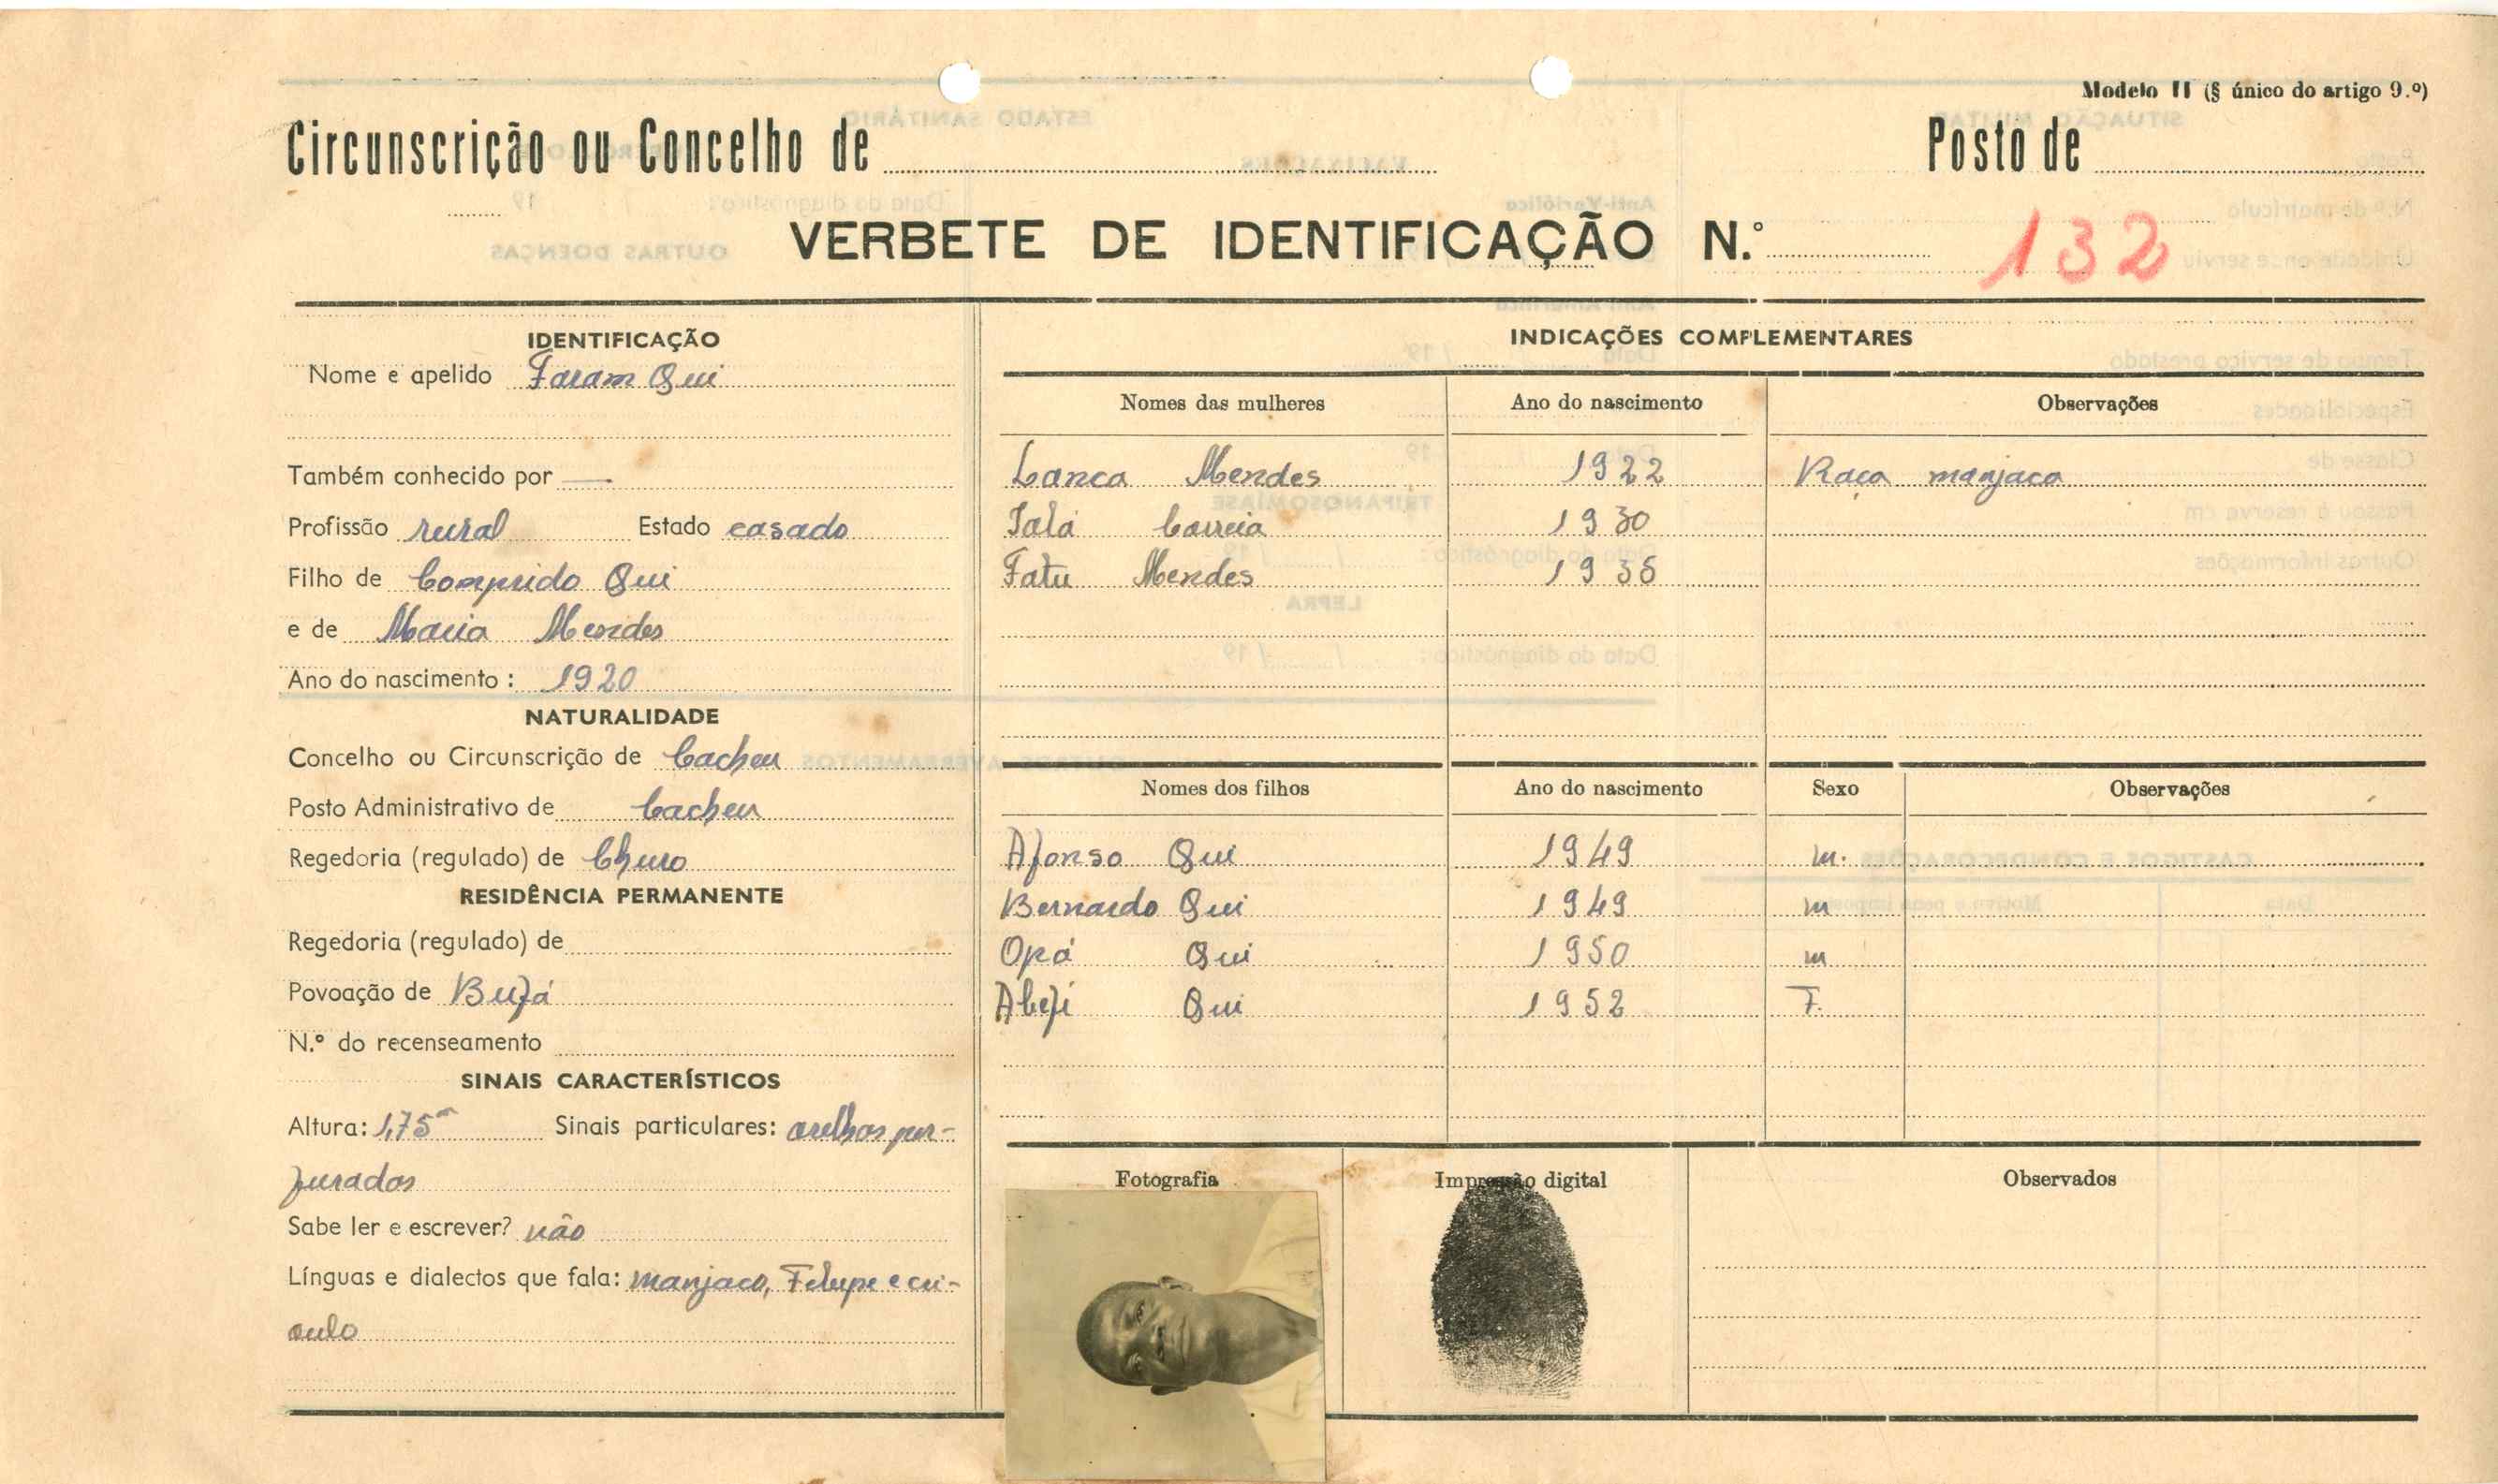 Modelo II (§ único do artigo 9.º)
Circunscrição ou Concelho de Posto de
VERBETE DE IDENTIFICAÇÃO N.º 132
IDENTIFICAÇÃO
Nome e apelido Faram Qui
Também conhecido por —
Profissão rural Estado casado
Filho de Comprido Qui
e de Maria Mendes
Ano do nascimento: 1920
NATURALIDADE
Concelho ou Circunscrição de Cacheu
Posto Administrativo de Cacheu
Regedoria (regulado) de Churo
RESIDÊNCIA PERMANENTE
Regedoria (regulado) de
Povoação de
N.º do recenseamento
SINAIS CARACTERÍSTICOS
Altura: 1,75m Sinais particulares: orelhas per-
furadas
Sabe ler e escrever? não
Línguas e dialectos que fala: manjaco, Felupe e cri-
oulo
INDICAÇÕES COMPLEMENTARES
Nomes das mulheres Ano do nascimento Observações
Lanca Mendes 1922 Raça manjaca
Correia 1930
Fatu Mendes
Nomes dos filhos Ano do nascimento Sexo Observações
Afonso Qui 1949 m.
Bernardo Qui 1949 m
Opá Qui 1950 m
Qui 1952 F.
Fotografia Impressão digital Observados